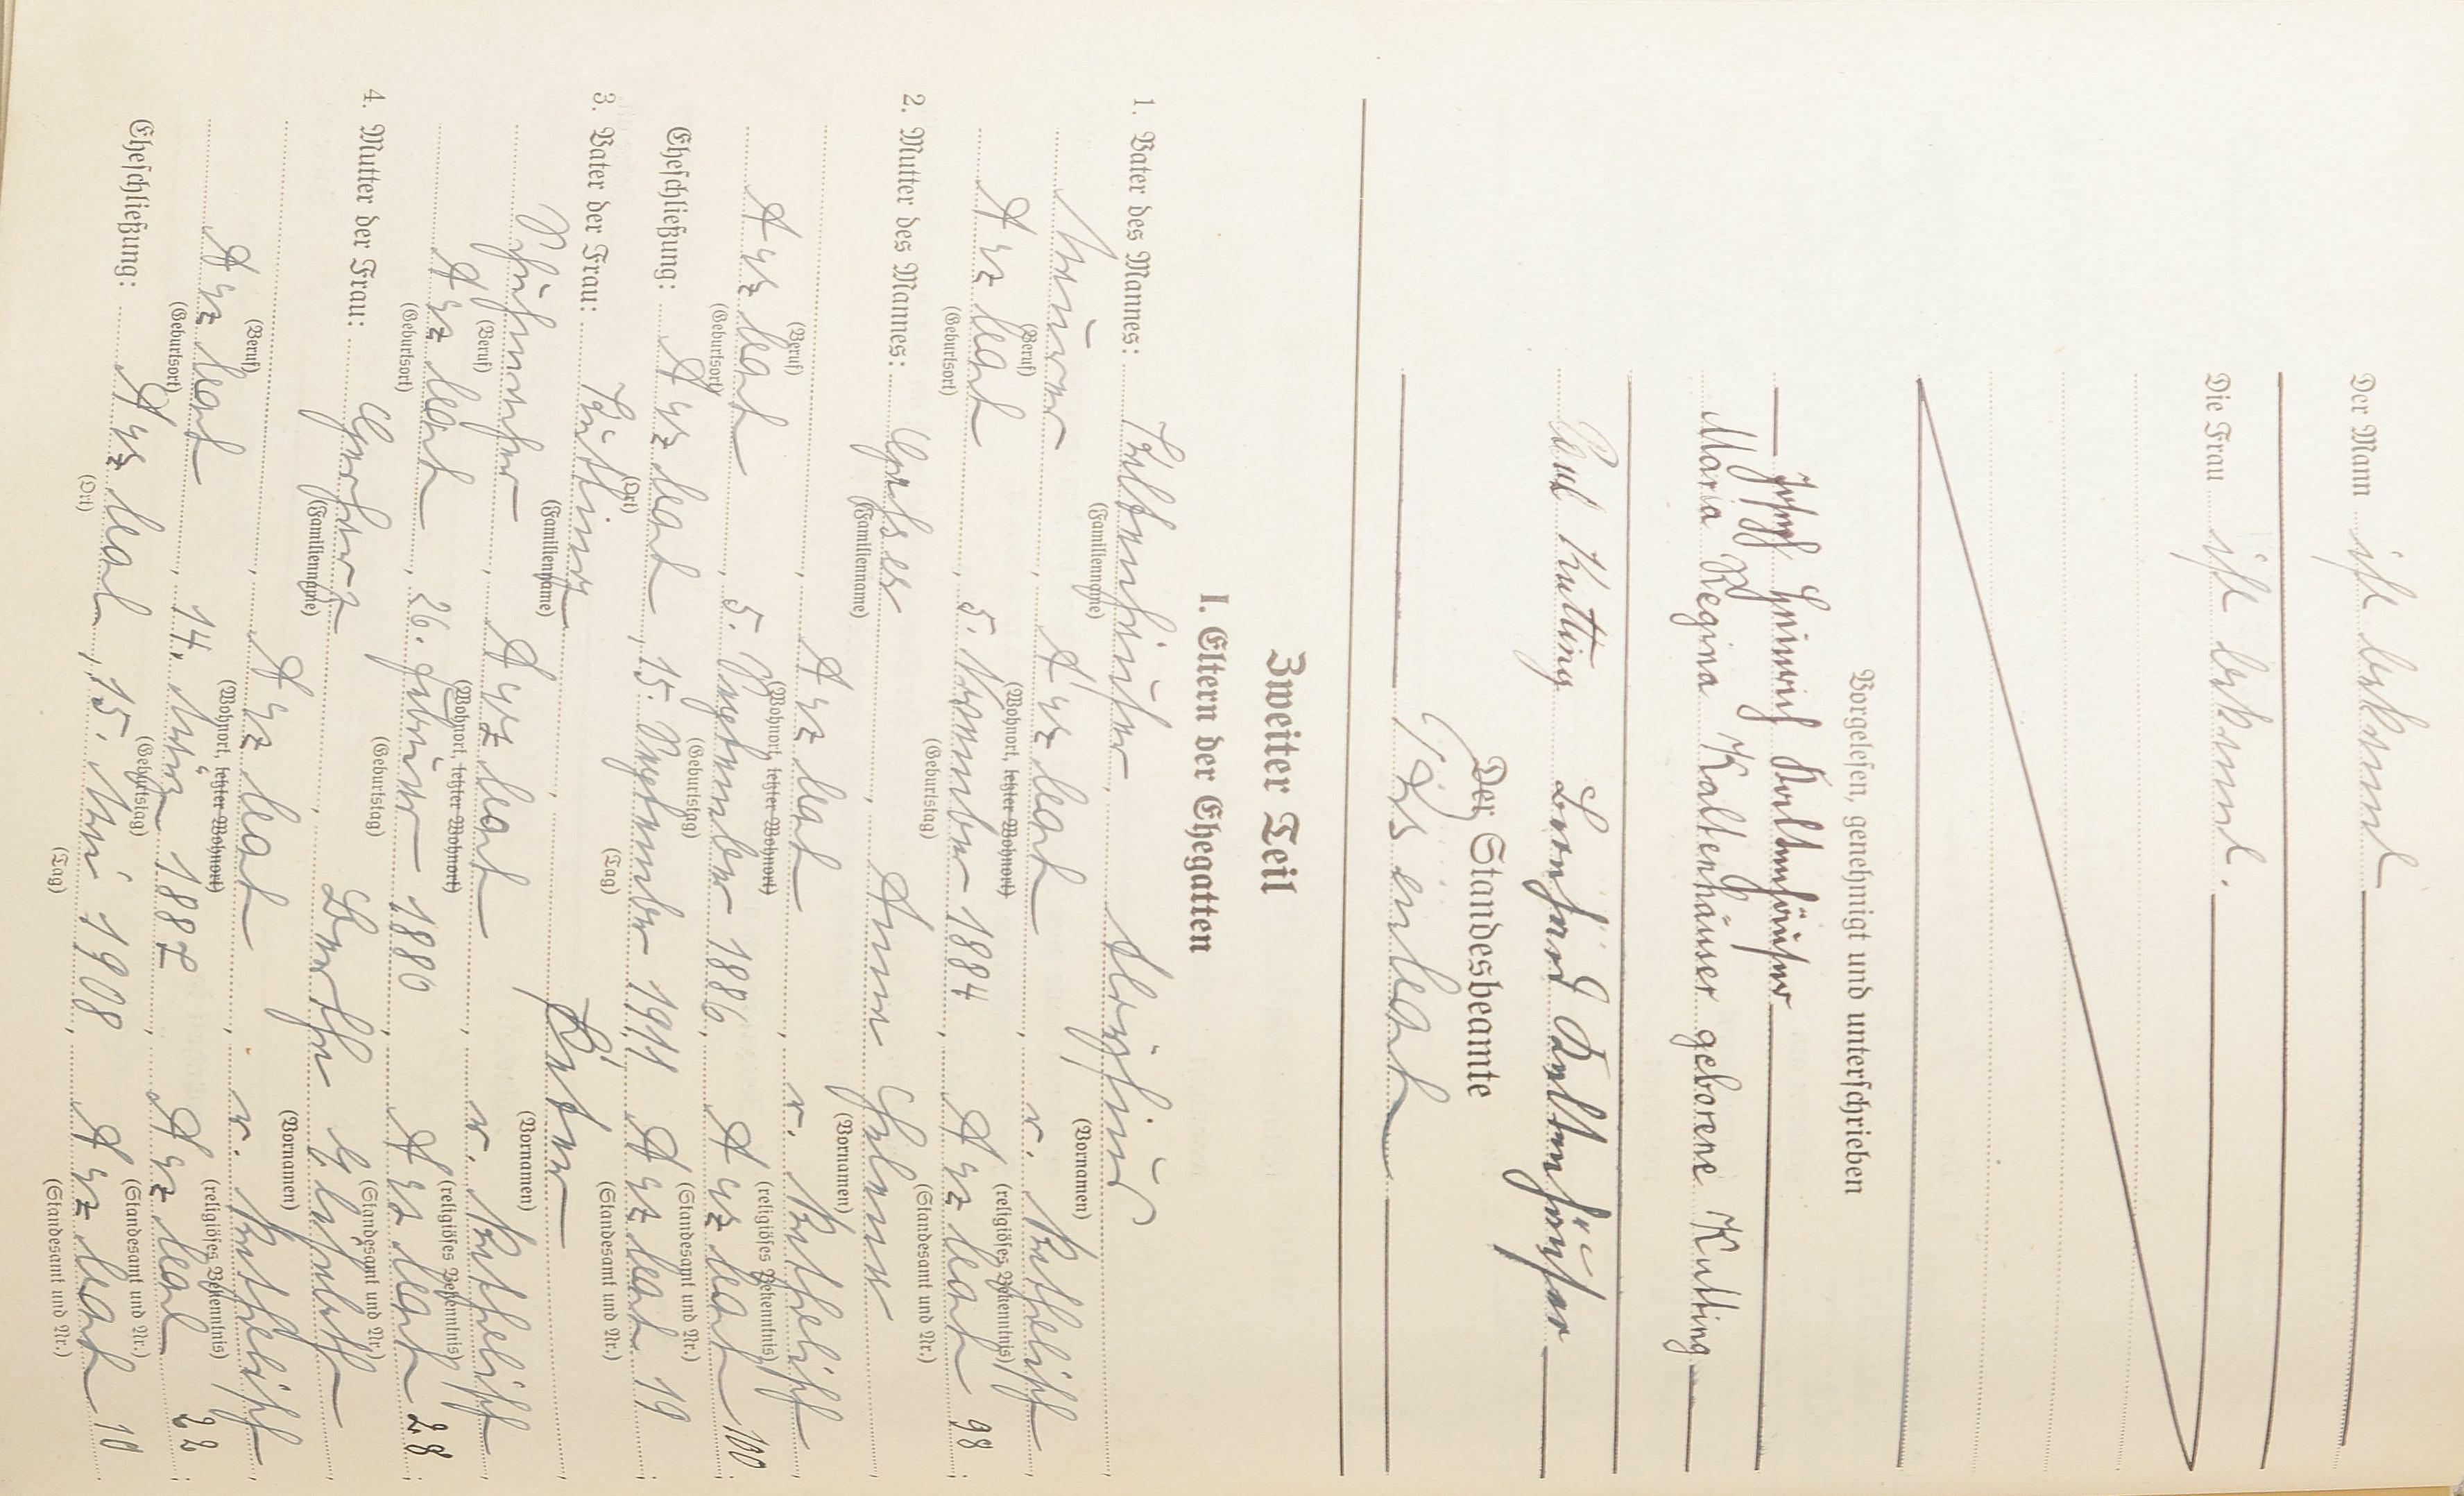 Der Mann ist bekannt
Die Frau ist bekannt.
Vorgelesen, genehmigt und unterschrieben
Josef Heinrich Kaltenhäuser
Maria Regina Kaltenhäuser geborene Kutting
Paul Kutting Bernhard Kaltenhäuser
Der Standesbeamte
Zweiter Teil
I. Eltern der Ehegatten
1. Vater des Mannes: Kaltenhäuser, Aloysius
(Familienname) (Vornamen)
Maurer, Arzbach, r. Katholisch,
(Beruf) (Wohnort, letzter Wohnort) (religiöses Bekenntnis)
Arzbach, 5. November 1884, Arzbach 98;
(Geburtsort) (Geburtstag) (Standesamt und Nr.)
2. Mutter des Mannes: Anna Helena
(Familienname) (Vornamen)
Arzbach, r. Katholisch,
(Beruf) (Wohnort, letzter Wohnort) (religiöses Bekenntnis)
Arzbach, 5. September 1886, Arzbach 100;
(Geburtsort) (Geburtstag) (Standesamt und Nr.)
Eheschließung: Arzbach, 15. September 1911, Arzbach 19;
(Ort) (Tag) (Standesamt und Nr.)
3. Vater der Frau: Kutting, Peter
(Familienname) (Vornamen)
Arzbach, r. Katholisch,
(Beruf) (Wohnort, letzter Wohnort) (religiöses Bekenntnis)
Arzbach, 26. Februar 1880, Arzbach 28;
(Geburtsort) (Geburtstag) (Standesamt und Nr.)
4. Mutter der Frau: Gerharz, Elisabeth
(Familienname) (Vornamen)
Arzbach, r. Katholisch,
(Beruf) (Wohnort, letzter Wohnort) (religiöses Bekenntnis)
Arzbach, 14. März 1882, Arzbach 22;
(Geburtsort) (Geburtstag) (Standesamt und Nr.)
Eheschließung: Arzbach, 15. Mai 1908, Arzbach 10
(Ort) (Tag) (Standesamt und Nr.)